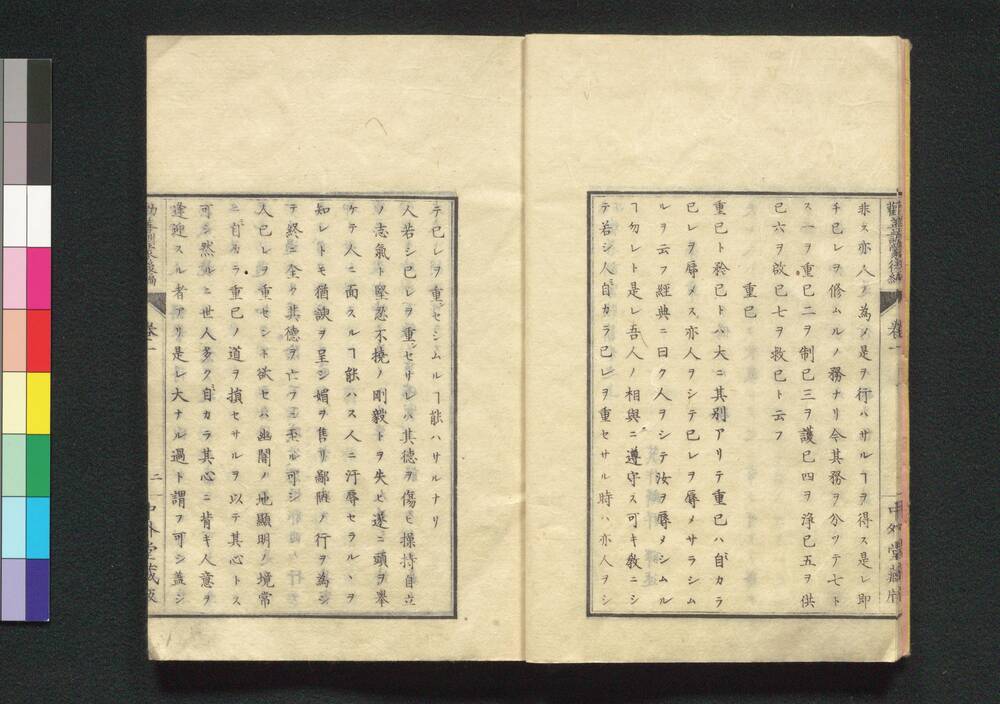 非ス亦人ノ為メ是ヲ行ハサルヿヲ得ス是レ即
チ已レヲ修ムルノ務ナリ今其務ヲ分ツテ七ト
ス一ヲ重已二ヲ制已三ヲ護已四ヲ浄已五ヲ供
已六ヲ啟已七ヲ救已ト云フ
重已
重已ト矜已トハ大ニ其別アリテ重已ハ自カラ
已レヲ辱メス亦人ヲシテ已レヲ辱メサラシム
ルヲ云フ經典ニ曰ク人ヲシテ汝ヲ辱メシムル
ヿ勿レト是レ吾人ノ相與ニ遵守ス可キ教ニシ
テ若シ人自カラ已レヲ重セサル時ハ亦人ヲシ
テ已レヲ重セシムルヿ能ハサルナリ
人若シ已レヲ重セサレハ其德ヲ傷ヒ操持自立
ノ志氣ト堅忍不撓ノ剛毅トヲ失ヒ遂ニ頭ヲ擧
ケテ人ニ面スルヿ能ハス人ニ汙辱セラルヽヲ
知レトモ猶諛ヲ呈シ媚ヲ售リ鄙陋ノ行ヲ為シ
テ終ニ全ク其德ヲ亡フニ至ル可シ
人已レヲ重セント欲セハ幽闇ノ地顯明ノ境常
ニ自カラ重已ノ道ヲ損セサルヲ以テ其心トス
可シ然ルニ世人多ク自カラ其心ニ背キ人意ヲ
逢迎スル者アリ是レ大ナル過ト謂フ可シ蓋シ
卷一
二